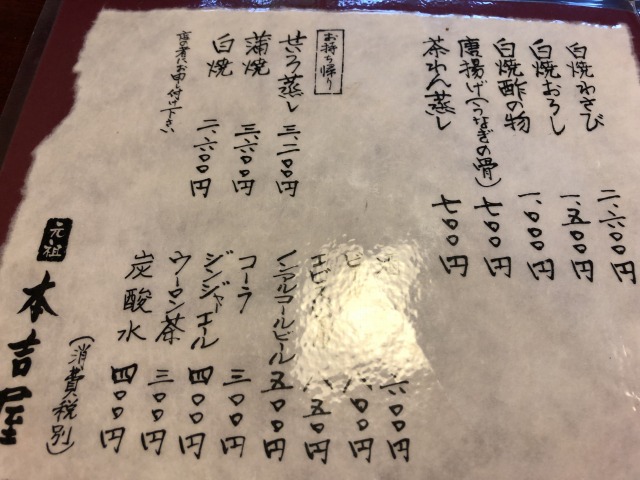 白焼わさび 二、六〇〇円
白焼おろし 一、五〇〇円
白焼酢の物 一、〇〇〇円
唐揚げ(うなぎの骨) 七〇〇円
茶わん蒸し 七〇〇円
お持ち帰り
せいろ蒸し 三、二〇〇円
蒲焼 三、六〇〇円
白焼 二、六〇〇円
店の者にお申し付け下さい
六〇〇円
ビ 八〇〇円
エビ 八五〇円
ノンアルコールビール 五〇〇円
コーラ 三〇〇円
ジンジャエール 四〇〇円
ウーロン茶 三〇〇円
炭酸水 四〇〇円
(消費税別)
元祖
本吉屋